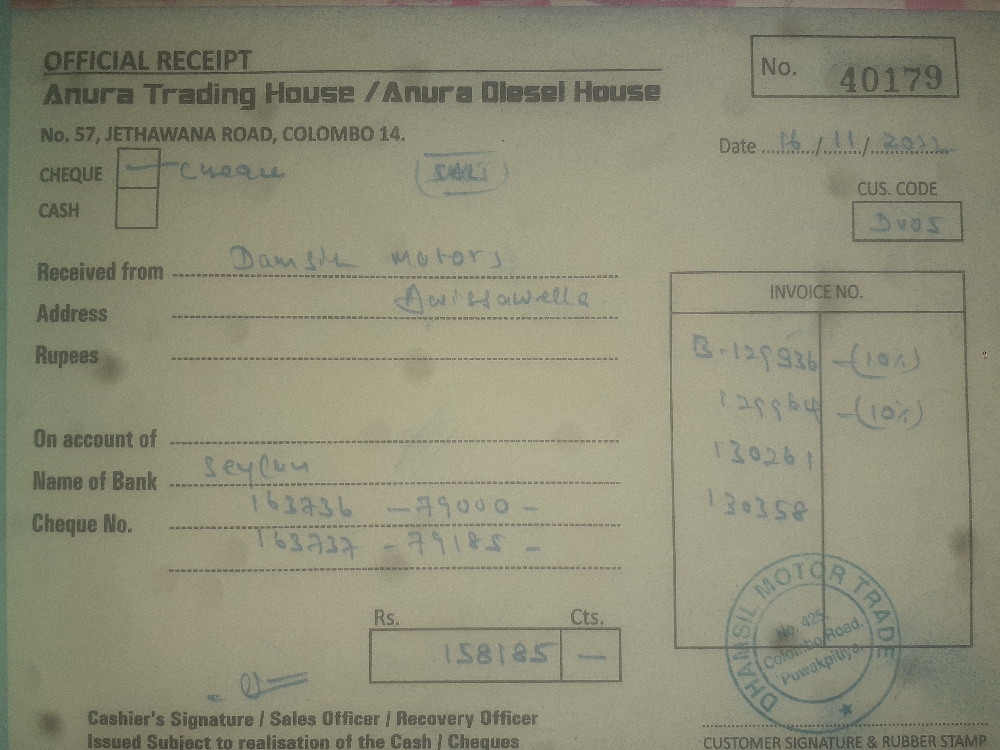 OFFICIAL RECEIPT
No. 40179
Anura Trading House / Anura Diesel House
No. 57, JETHAWANA ROAD, COLOMBO 14.
Date 16/11/2022
CHEQUE Cheque
CUS. CODE
CASH
Received from Damsil Motors
INVOICE NO.
Address Awissawella
Rupees
B-129936 -(10%)
129964 -(10%)
On account of
130261
Name of Bank Seylan
130358
Cheque No. 163736 - 79000 -
163737 - 79185 -
DHAMSIL MOTOR TRADE
No. 425,
Colombo Road,
Puwakpitiya.
Rs. Cts.
158185 —
Cashier's Signature / Sales Officer / Recovery Officer
Issued Subject to realisation of the Cash / Cheques
CUSTOMER SIGNATURE & RUBBER STAMP